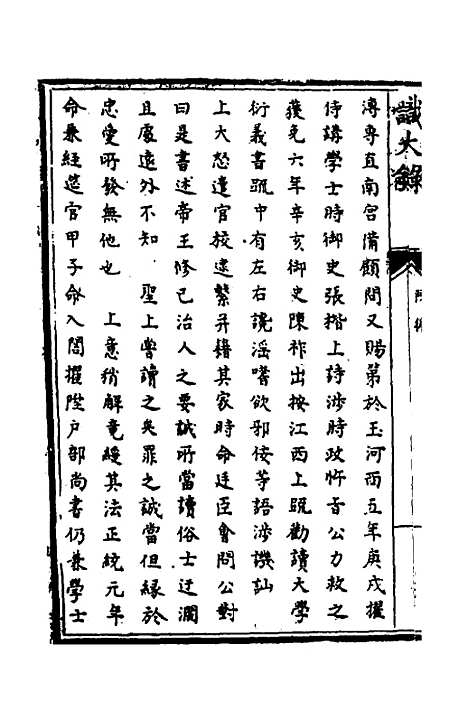 識大錄
溥專直南宮備顧問又賜第於玉河西五年庚戌擢
侍講學士時御史張楷上詩涉時政忤旨公力救之
獲免六年辛亥御史陳祚出按江西上䟽勸讀大學
衍義書䟽中有左右讒淫嗜欲邪佞等語涉譏訕
上大怒遣官校逮繫并籍其家時命廷臣會問公對
曰是書述帝王修己治人之要誠所當讀俗士迂濶
且處遠外不知　聖上嘗讀之矣罪之誠當但緣於
忠愛所發無他也　上意稍解竟緩其法正統元年
命兼經筵官甲子命入閣擢陞戶部尚書仍兼學士